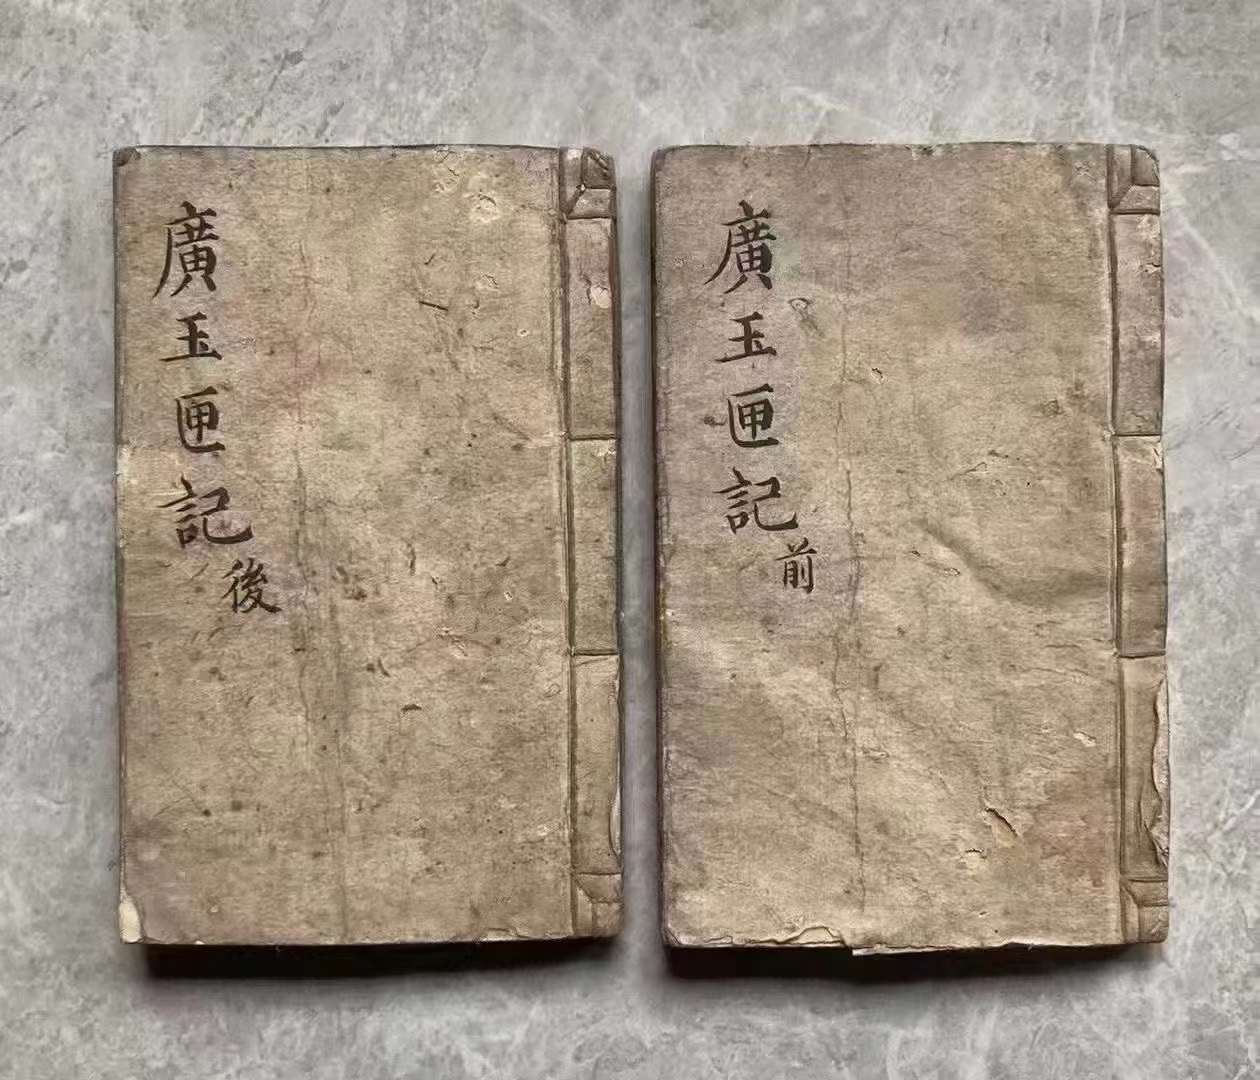 廣玉匣記前
廣玉匣記後